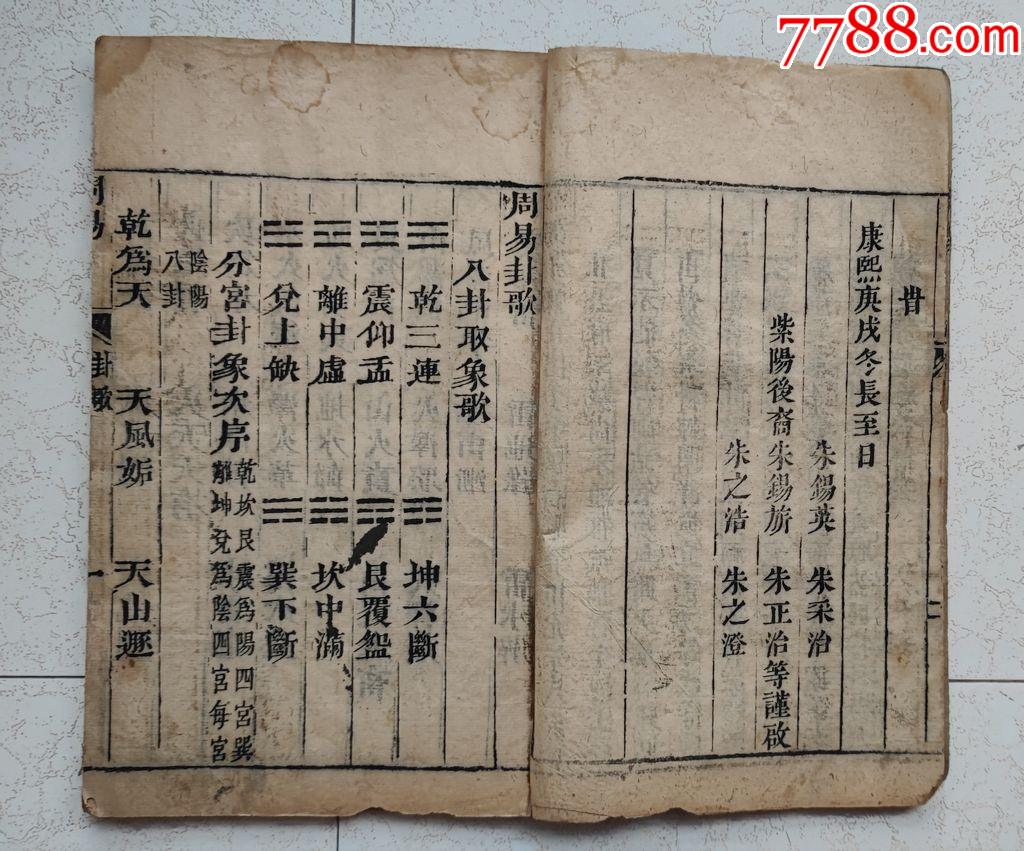 7788.com
康熙庚戌冬長至日
朱錫英 朱采治
紫陽後裔朱錫旂 朱正治等謹啟
朱之浩 朱之澄
周易卦歌
八卦取象歌
☰ 乾三連 ☷ 坤六斷
☳ 震仰盂 ☶ 艮覆盌
☲ 離中虛 ☵ 坎中滿
☱ 兌上缺 ☴ 巽下斷
分宮卦象次序 乾坎艮震爲陽四宮巽
離坤兌爲陰四宮每宮
陰陽
八卦
乾爲天 天風姤 天山遯
周易 卦歌 一